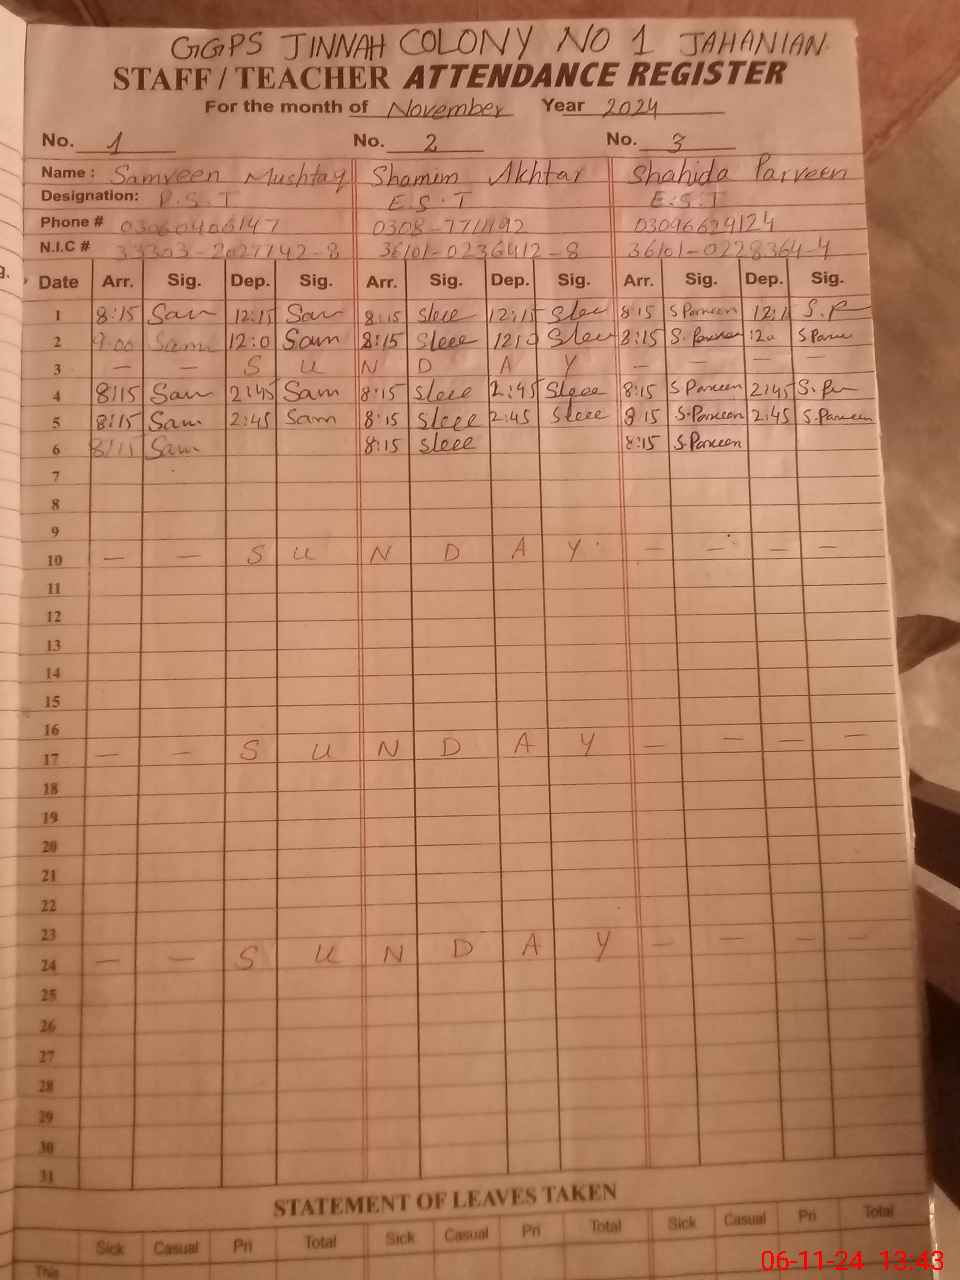 GGPS JINNAH COLONY NO 1 JAHANIAN
STAFF / TEACHER ATTENDANCE REGISTER
For the month of November Year 2024
No. 1 No. 2 No. 3
Name : Samreen Mushtaq Shamim Akhtar Shahida Parveen
Designation: P.S.T E.S.T E.S.T
Phone # 03060406147 0308-7711192 03096624124
N.I.C # 33303-2027742-8 36101-0236412-8 36101-0228364-4
Date Arr. Sig. Dep. Sig. Arr. Sig. Dep. Sig. Arr. Sig. Dep. Sig.
1 8:15 Sam 12:15 Sam 8:15 12:15 8:15 S Parveen S.P
2 9:00 Sam 12:0 Sam 8:15 12:0 8:15 S. Parveen
3 — — S U N D A Y — — — —
4 8:15 Sam 2:45 Sam 8:15 2:45 8:15 S Parveen 2:45
5 8:15 Sam 2:45 Sam 8:15 2:45 8:15 S.Parveen 2:45 S.Parveen
6 8:15 Sam 8:15 8:15 S.Parveen
7
8
9
10 — — S U N D A Y — — — —
11
12
13
14
15
16
17 — — S U N D A Y — — — —
18
19
20
21
22
23
24 — — S U N D A Y — — — —
25
26
27
28
29
30
31
STATEMENT OF LEAVES TAKEN
Sick Casual Pri Total Sick Casual Pri Total Sick Casual Pri Total
This
06-11-24 13:43